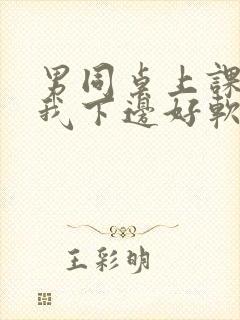 男同桌上課
我下邊好軟
王彩明